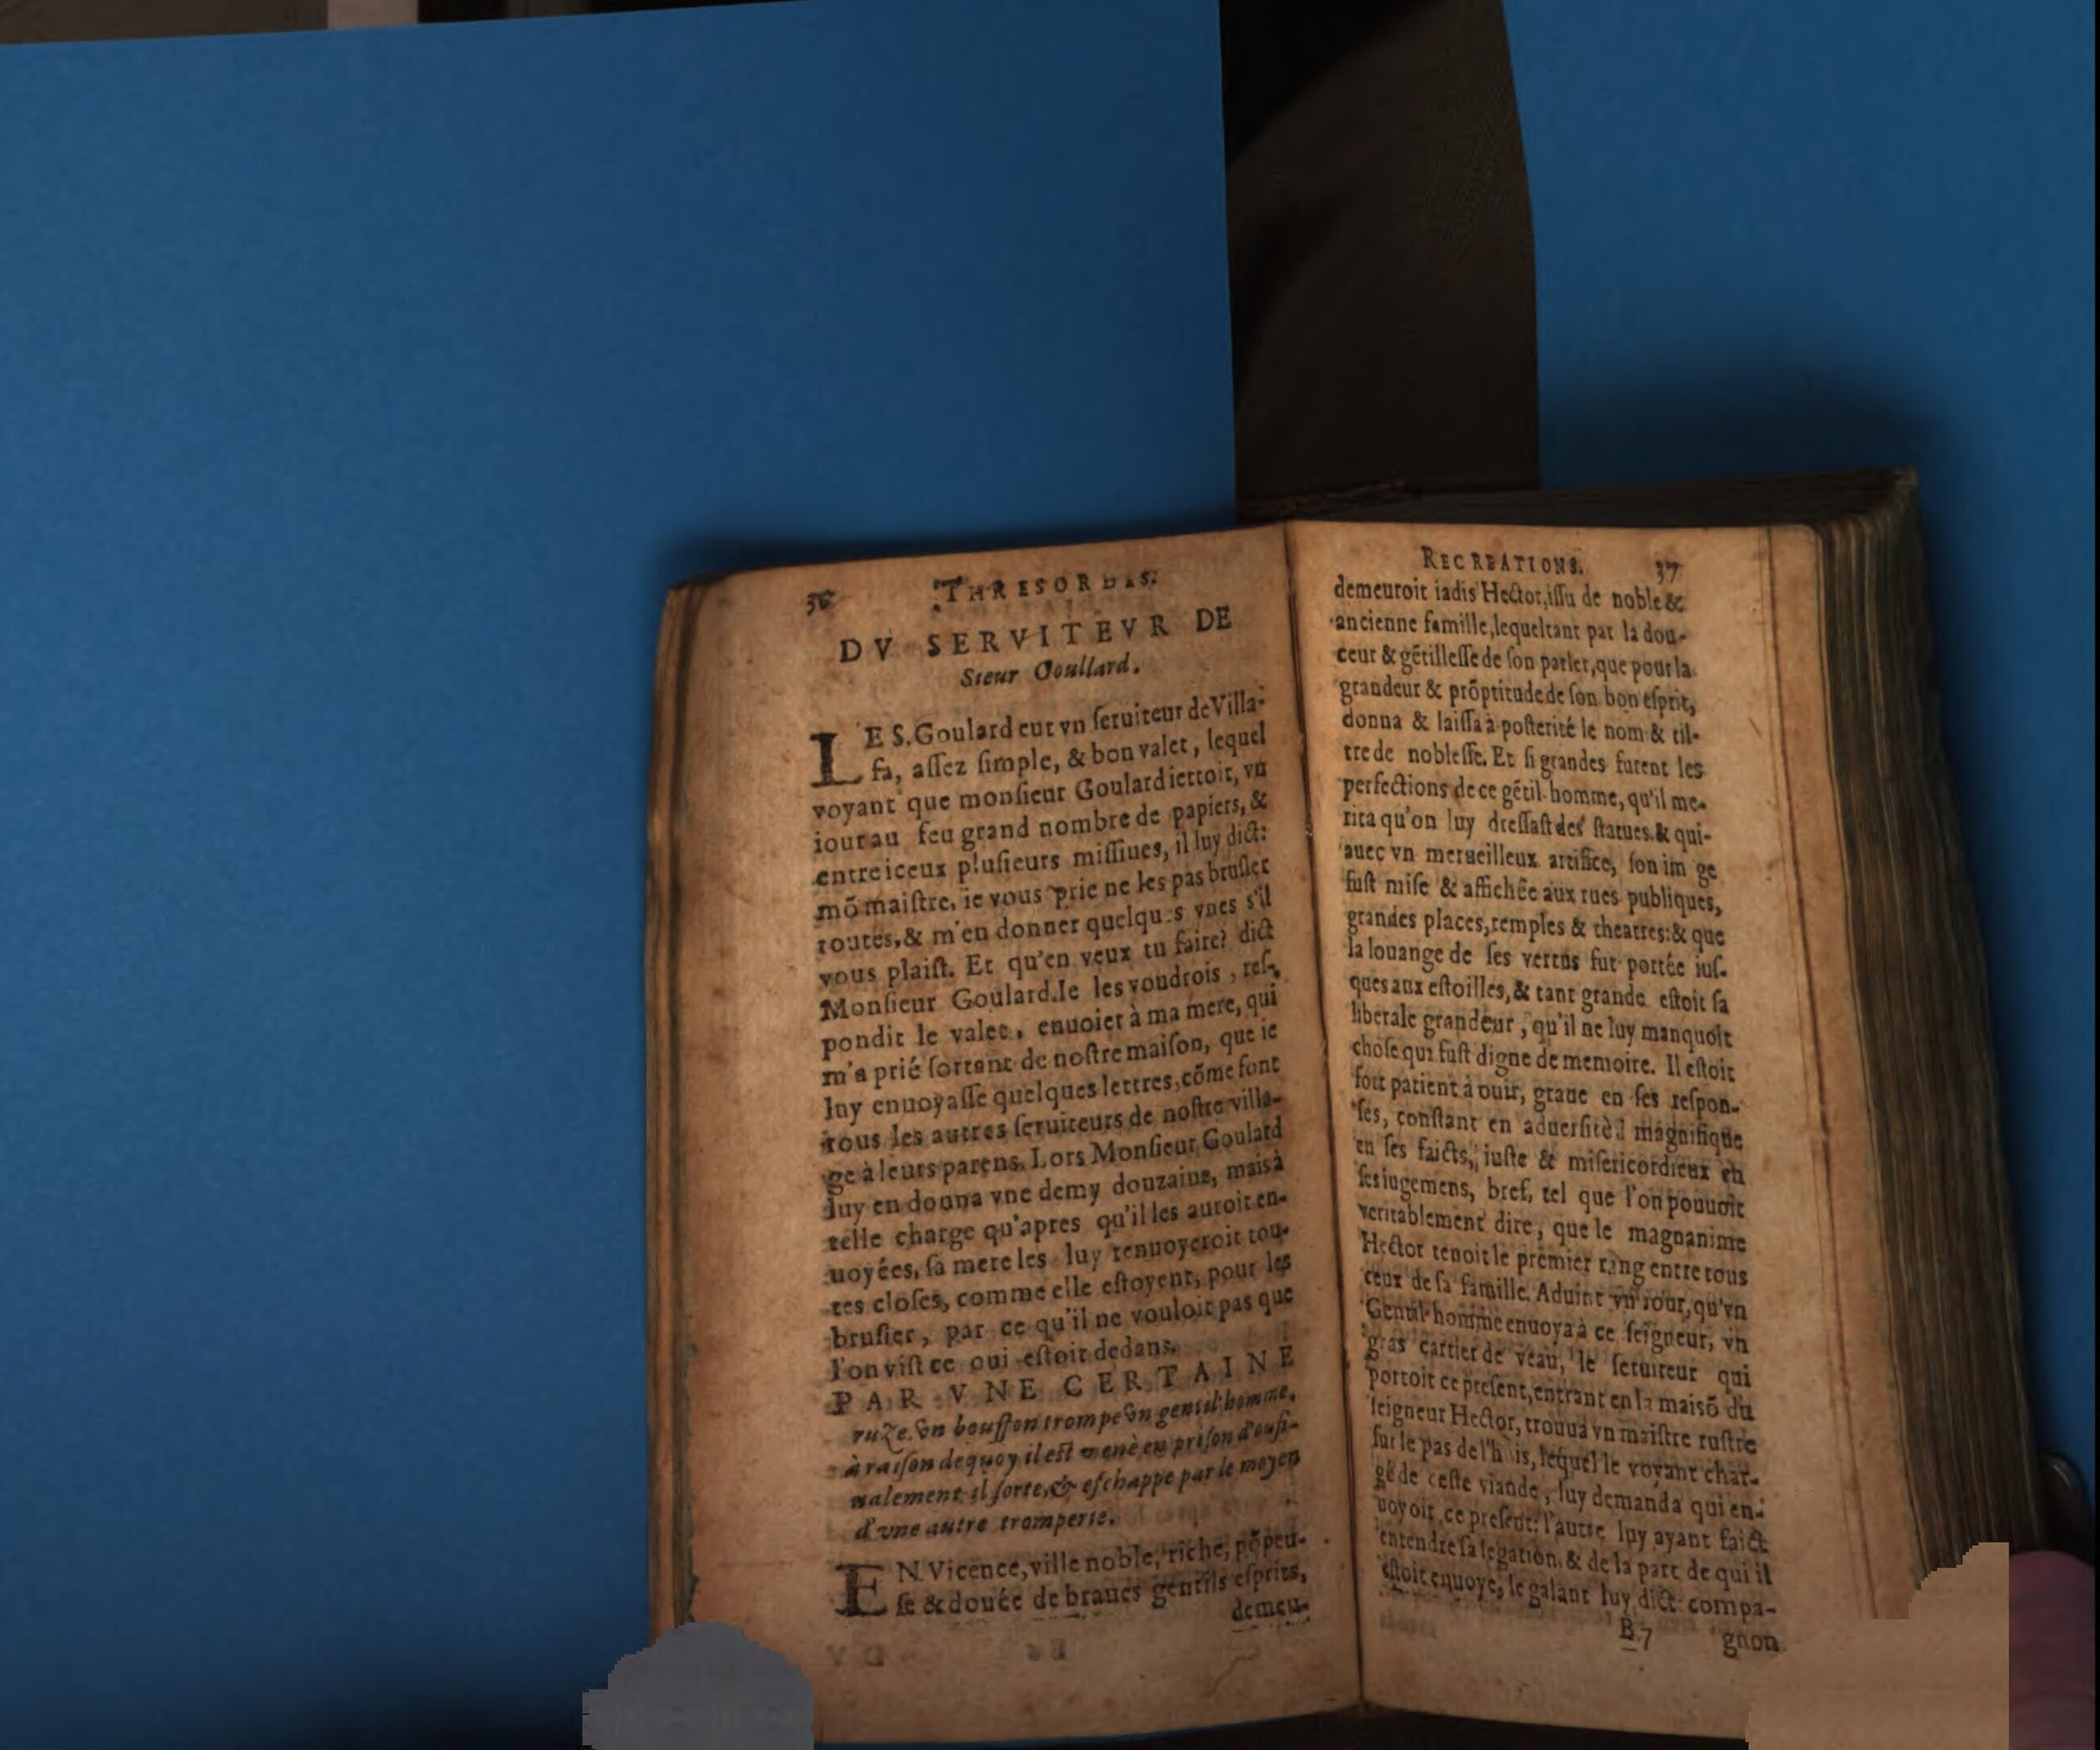 36 THRESOR DES.
DV SERVITEVR DE
Sieur Goullard.
LE S. Goulard eut vn ſeruiteur de Villa-
fa, aſſez ſimple, & bon valet, lequel
voyant que monſieur Goulard iettoit, vn
iour au feu grand nombre de papiers, &
entre iceux pluſieurs miſſiues, il luy dict:
mō maiſtre, ie vous prie ne les pas bruſler
toutes, & m'en donner quelques vnes s'il
vous plaiſt. Et qu'en veux tu faire? dict
Monſieur Goulard. Ie les voudrois, reſ-
pondit le valet, enuoier à ma mere, qui
m'a prié ſortant de noſtre maiſon, que ie
luy enuoyaſſe quelques lettres, cōme font
tous les autres ſeruiteurs de noſtre villa-
ge à leurs parens. Lors Monſieur Goulard
luy en donna vne demy douzaine, mais à
telle charge qu'apres qu'il les auroit en-
uoyées, ſa mere les luy renuoyeroit tou-
tes cloſes, comme elle eſtoyent, pour les
bruſler, par ce qu'il ne vouloit pas que
l'on viſt ce qui eſtoit dedans.
PAR VNE CERTAINE
ruze vn bouffon trompe vn gentil-homme,
à raiſon dequoy il eſt mené en priſon d'ou fi-
nalement il ſorte, & eſchappe par le moyen
d'vne autre tromperie.
EN Vicence, ville noble, riche, pōpeu-
ſe & douée de braues gentils eſprits,
demeu-
RECREATIONS. 37
demeuroit iadis Hector, iſſu de noble &
ancienne famille, lequel tant par la dou-
ceur & gētilleſſe de ſon parler, que pour la
grandeur & prōptitude de ſon bon eſprit,
donna & laiſſa à poſterité le nom & til-
tre de nobleſſe. Et ſi grandes furent les
perfections de ce gētil-homme, qu'il me-
rita qu'on luy dreſſaſt des ſtatues & qui-
auec vn merueilleux artifice, ſon im ge
fuſt miſe & affichée aux rues publiques,
grandes places, temples & theatres: & que
la louange de ſes vertus fut portée iuſ-
ques aux eſtoilles, & tant grande eſtoit ſa
liberale grandeur, qu'il ne luy manquoit
choſe qui fuſt digne de memoire. Il eſtoit
fort patient à ouir, graue en ſes reſpon-
ſes, conſtant en aduerſitè: magnifique
en ſes faicts, iuſte & miſericordieux en
ſes iugemens, bref, tel que l'on pouuoit
veritablement dire, que le magnanime
Hector tenoit le premier rang entre tous
ceux de ſa famille. Aduint vn iour, qu'vn
Gentil-homme enuoya à ce ſeigneur, vn
gras cartier de veau, le ſeruiteur qui
portoit ce preſent, entrant en la maisō du
ſeigneur Hector, trouua vn maiſtre ruſtre
ſur le pas de l'h is, lequel le voyant char-
gé de ceſte viande, luy demanda qui en-
uoyoit ce preſent: l'autre luy ayant faict
entendre ſa legation, & de la part de qui il
eſtoit enuoyé, le galant luy dict compa-
B 7 gnon